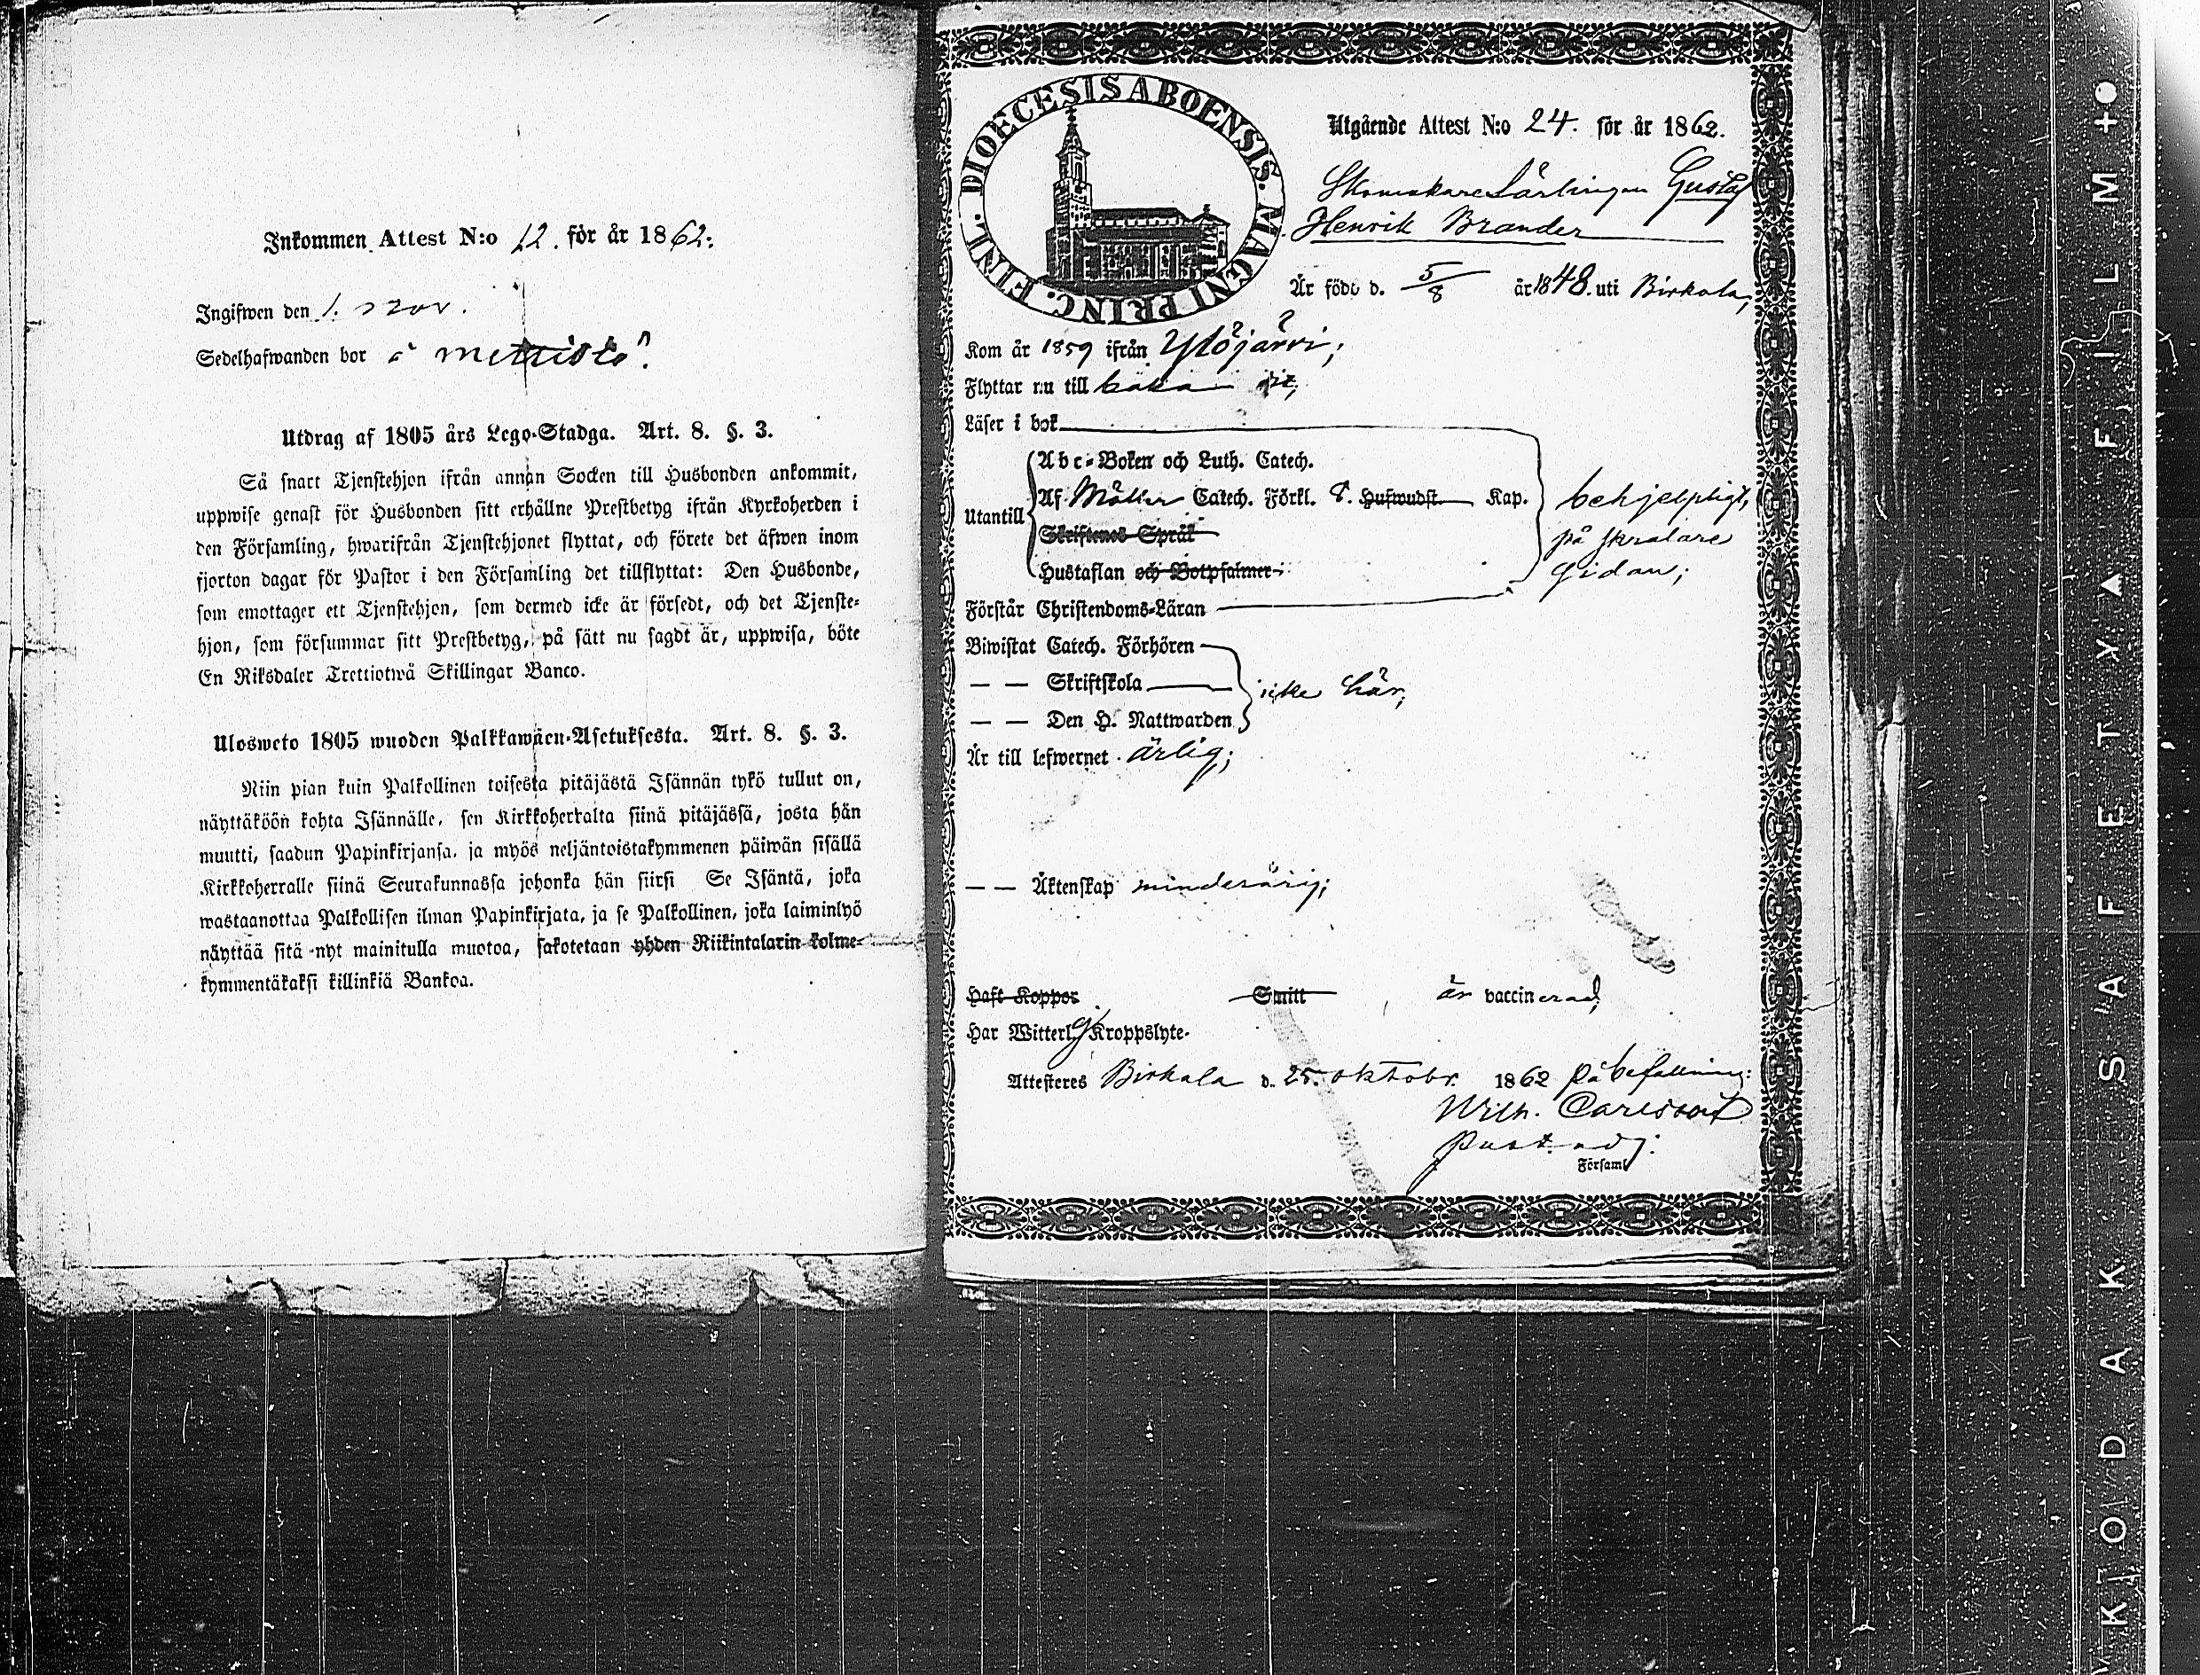 Inkommen Attest N:o 12. för år 1862:
Ingifwen den 1. nov.
Sedelhafwanden bor å Mettistö.
Utdrag af 1805 års Lego-Stadga. Art. 8. §. 3.
Så snart Tjenstehjon ifrån annan Socken till Husbonden ankommit,
uppwise genast för Husbonden sitt erhållne Prestbetyg ifrån Kyrkoherden i
den Församling, hwarifrån Tjenstehjonet flyttat, och förete det äfwen inom
fjorton dagar för Pastor i den Församling det tillflyttat: Den Husbonde,
som emottager ett Tjenstehjon, som dermed icke är försedt, och det Tjenste-
hjon, som försummar sitt Prestbetyg, på sätt nu sagdt är, uppwisa, böte
En Riksdaler Trettiotwå Skillingar Banco.
Ulosweto 1805 wuoden Palkkawäen-Asetuksesta. Art. 8. §. 3.
Niin pian kuin Palkollinen toisesta pitäjästä Isännän tykö tullut on,
näyttäköön kohta Isännälle, sen Kirkkoherralta siinä pitäjässä, josta hän
muutti, saadun Papinkirjansa, ja myös neljäntoistakymmenen päiwän sisällä
Kirkkoherralle siinä Seurakunnassa johonka hän siirsi Se Isäntä, joka
wastaanottaa Palkollisen ilman Papinkirjata, ja se Palkollinen, joka laiminlyö
näyttää sitä nyt mainitulla muotoa, sakotetaan yhden Riikintalarin kolme-
kymmentäkaksi killinkiä Bankoa.
DIOECESIS ABOENSIS. MAGNI PRINC. FINL.
Utgående Attest N:o 24. för år 1862.
Skomakare Lärlingen Gustaf
Henrik Brander
Är född d. 5/8 år 1848. uti Birkala,
Kom år 1859 ifrån Ylöjärvi;
Flyttar nu till baka dit,
Läser i bok
Abc-Boken och Luth. Catech.
Utantill Af Möller Catech. Förkl. 8. Hufwudst. Kap. behjelpligt,
Skriftenes Språk på svalare
Hustaflan och Botpsalmer sidan;
Förstår Christendoms-Läran
Biwistat Catech. Förhören
— — Skriftskola icke här;
— — Den H. Nattwarden
Är till lefwernet ärlig;
— — Äktenskap minderårig;
Haft Koppor Smitt är vaccinerad;
Har Witterl. ej Kroppslyte.
Attesteres Birkala d. 25. oktobr. 1862 På befallning:
Wilh. Carlsson
Past. adj.
Församl
KODAK SAFETY FILM